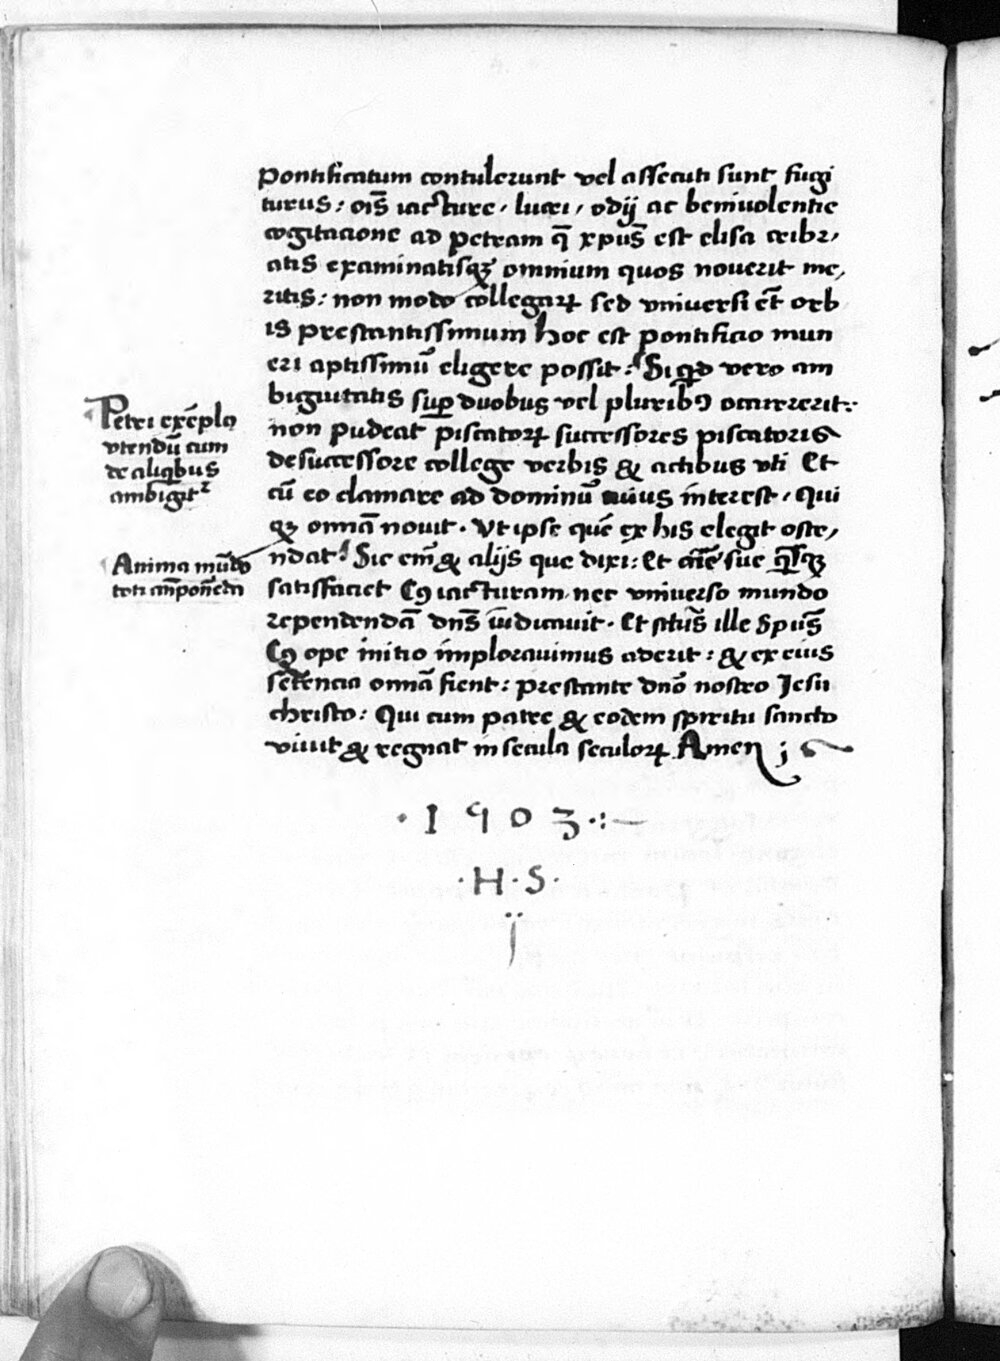 pontificatum contulerunt vel assecuti sunt fugi
turus: oīs iacture, lucri, odij ac beniuolentie
cogitacione ad petram q̄ xpūs est elisa cribr,
atis examinatisqȝ omnium quos nouerit me,
ritis: non modo collegarꝝ sed vniuersi et̄ orb
is prestantissimum hoc est pontificio mun
eri aptissimū eligere possit: Si qͥd vero am
biguitatis suꝑ duobus vel pluribꝰ ocurrerit:
non pudeat piscatorꝝ successores piscatoris
de successore college verbis & actibus vti Et
cū eo clamare ad dominū cuius interest, Qui
qȝ omnā nouit. Vt ipse quē ex his elegit oste,
ndat! Sic em̄ & alijs que dixi: Et aīe sue
satisfaciet Cꝰ iacturam nec vniuerso mundo
rependendā dn̄s iudicauit. Et sctūs ille Spūs
Cꝰ ope initio implorauimus aderit: & ex eius
setēncia omnā fient: prestante dnō nostro Jesu
christo: Qui cum patre & eodem spiritu sancto
viuit & regnat in secula seculorꝝ Amen ;
Petri exēplo
vtendū cum
de aliqͥbus
ambigitᷣ
Anima mūdo
toti an̄ponēda
· 1 9 0 3 ·:
· H · S ·
ÿ